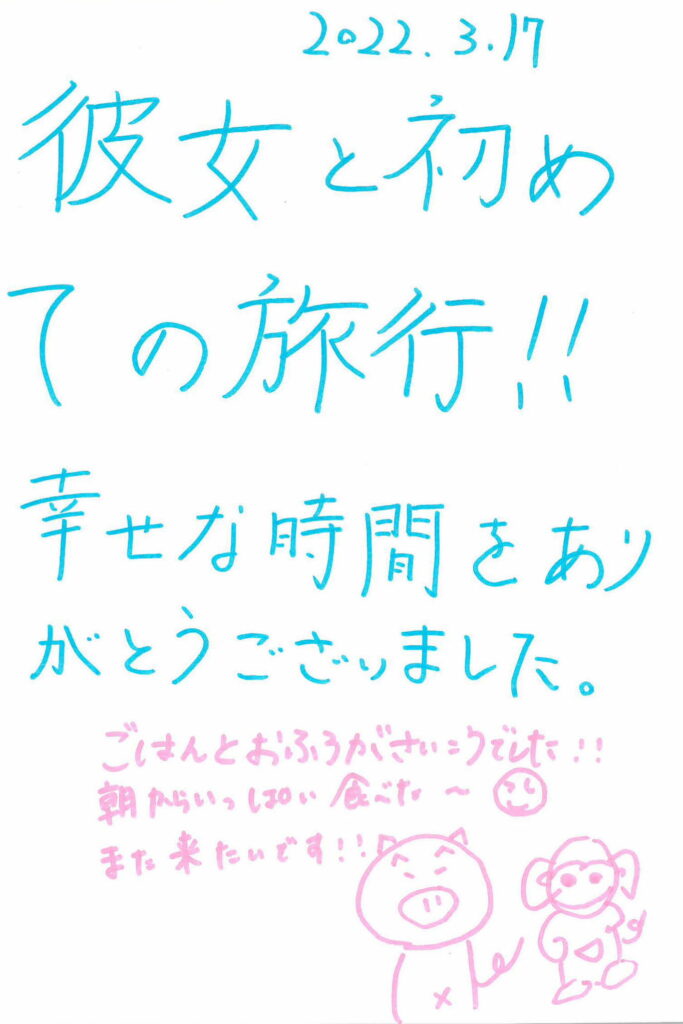 2022.3.17
彼女と初め
ての旅行!!
幸せな時間をあり
がとうございました。
ごはんとおふろがさいこうでした!!
朝からいっぱい食べた～
また来たいです!!